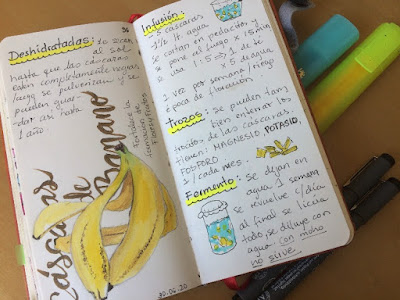 36
Deshidratadas: se
al sol
hasta que las cáscaras
estén completamente negras
luego se pulverizan y se
pueden guar-
dar así hasta
1 año.
Cáscaras
de
Banano
Fortalece la
formación de
flores y frutos
30.06.20
Infusión:
3 cáscaras
1½ lt agua
se cortan en pedacitos y
se pone al fuego x 15 min
se usa 1:5 ⇒ 1 de té
x 5 de agua
1 vez por semana/riego
época de floración.
Trozos: se pueden tam
bién enterrar los
trocitos de las cáscaras.
tienen: MAGNESIO, POTASIO,
FOSFORO
1/cada mes.
Fermento: se dejan en
agua 1 semana
se revuelve c/día
al final se licúa
todo, se diluye con
agua. con moho
no sirve.